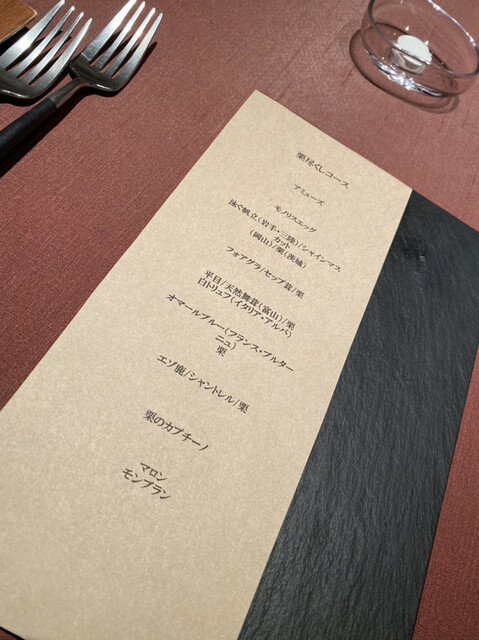 栗尽くしコース
アミューズ
モノリスエッグ
泳ぐ帆立(岩手・三陸)/シャインマス
カット
(岡山)/栗(茨城)
フォアグラ/セップ茸/栗
平目/天然舞茸(富山)/栗
白トリュフ(イタリア・アルバ)
オマールブルー(フランス・ブルター
ニュ)
栗
エゾ鹿/シャントレル/栗
栗のカプチーノ
マロン
モンブラン